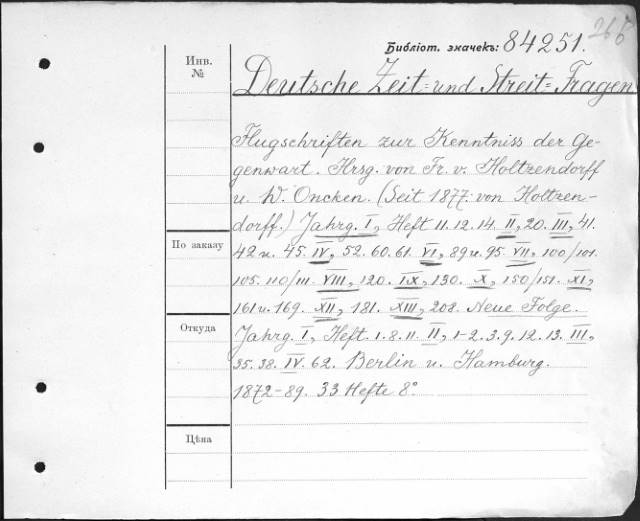 266
Библіот. значекъ: 84251.
Инв.
№
Deutsche Zeit= und Streit=Fragen
Flugschriften zur Kenntniss der Ge-
genwart. Hrsg. von Fr. v. Holtzendorff
u. W. Oncken. (Seit 1877: von Holtzen-
dorff.) Jahrg. I, Heft 11. 12. 14. II, 20. III, 41.
По заказу
42 u. 45. IV, 52. 60. 61. VI, 89 u. 95. VII, 100/101.
105. 110/111. VIII, 120. IX, 130. X, 150/151. XI,
161 u. 169. XII, 181. XIII, 202. Neue Folge.
Откуда
Jahrg. I, Heft 1. 8. 11. II, 1-2. 3. 9. 12. 13. III,
35. 38. IV. 62. Berlin u. Hamburg.
1872-89. 33 Hefte 8°
Цѣна